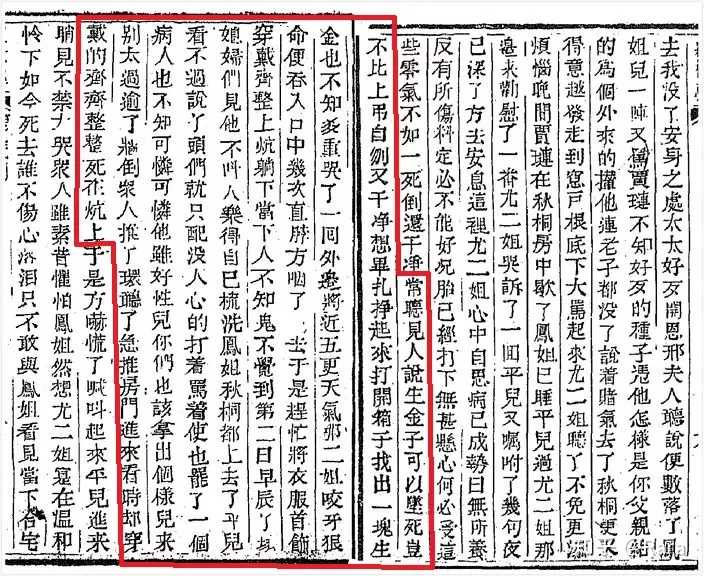 去我没了安身之處太太好歹開恩邢夫人聽說便數落了鳳
姐兒一陣又罵賈璉不知好歹的種子憑他怎樣是你父親給
的爲個外來的攆他連老子都没了說着賭氣去了秋桐更又
得意越發走到窓戸根底下大罵起來尤二姐聽了不免更
煩惱晚間賈璉在秋桐房中歇了鳳姐已睡平兒過尤二姐那
邊來勸慰了一番尤二姐哭訴了一回平兒又囑咐了幾句夜
已深了方去安息這裡尤二姐心中自思病已成勢日無所養
反有所傷料定必不能好况胎已經打下無甚懸心何必受這
些零氣不如一死倒還干净常聽見人說生金子可以墜死豈
不比上弔自刎又干净想畢扎挣起來打開箱子找出一塊生
金也不知多重哭了一回外邊將近五更天氣那二姐咬牙狠
命便吞入口中幾次直脖方咽了去于是趕忙將衣服首飾
穿戴齊整上炕躺下當下人不知鬼不覺到第二日早辰丫鬟
媳婦們見他不叫人樂得自已梳洗鳳姐秋桐都上去了平兒
看不過說丫頭們就只配没人心的打着罵着使也罷了一個
病人也不知可憐可憐他雖好性兒你們也該拿出個樣兒來
别太過逾了墻倒衆人推丫鬟聽了急推房門進來看時却穿
戴的齊齊整整死在炕上于是方嚇慌了喊叫起來平兒進來
瞧見不禁大哭衆人雖素昔懼怕鳳姐然想尤二姐寔在温和
憐下如今死去誰不傷心落淚只不敢與鳳姐看見當下合宅